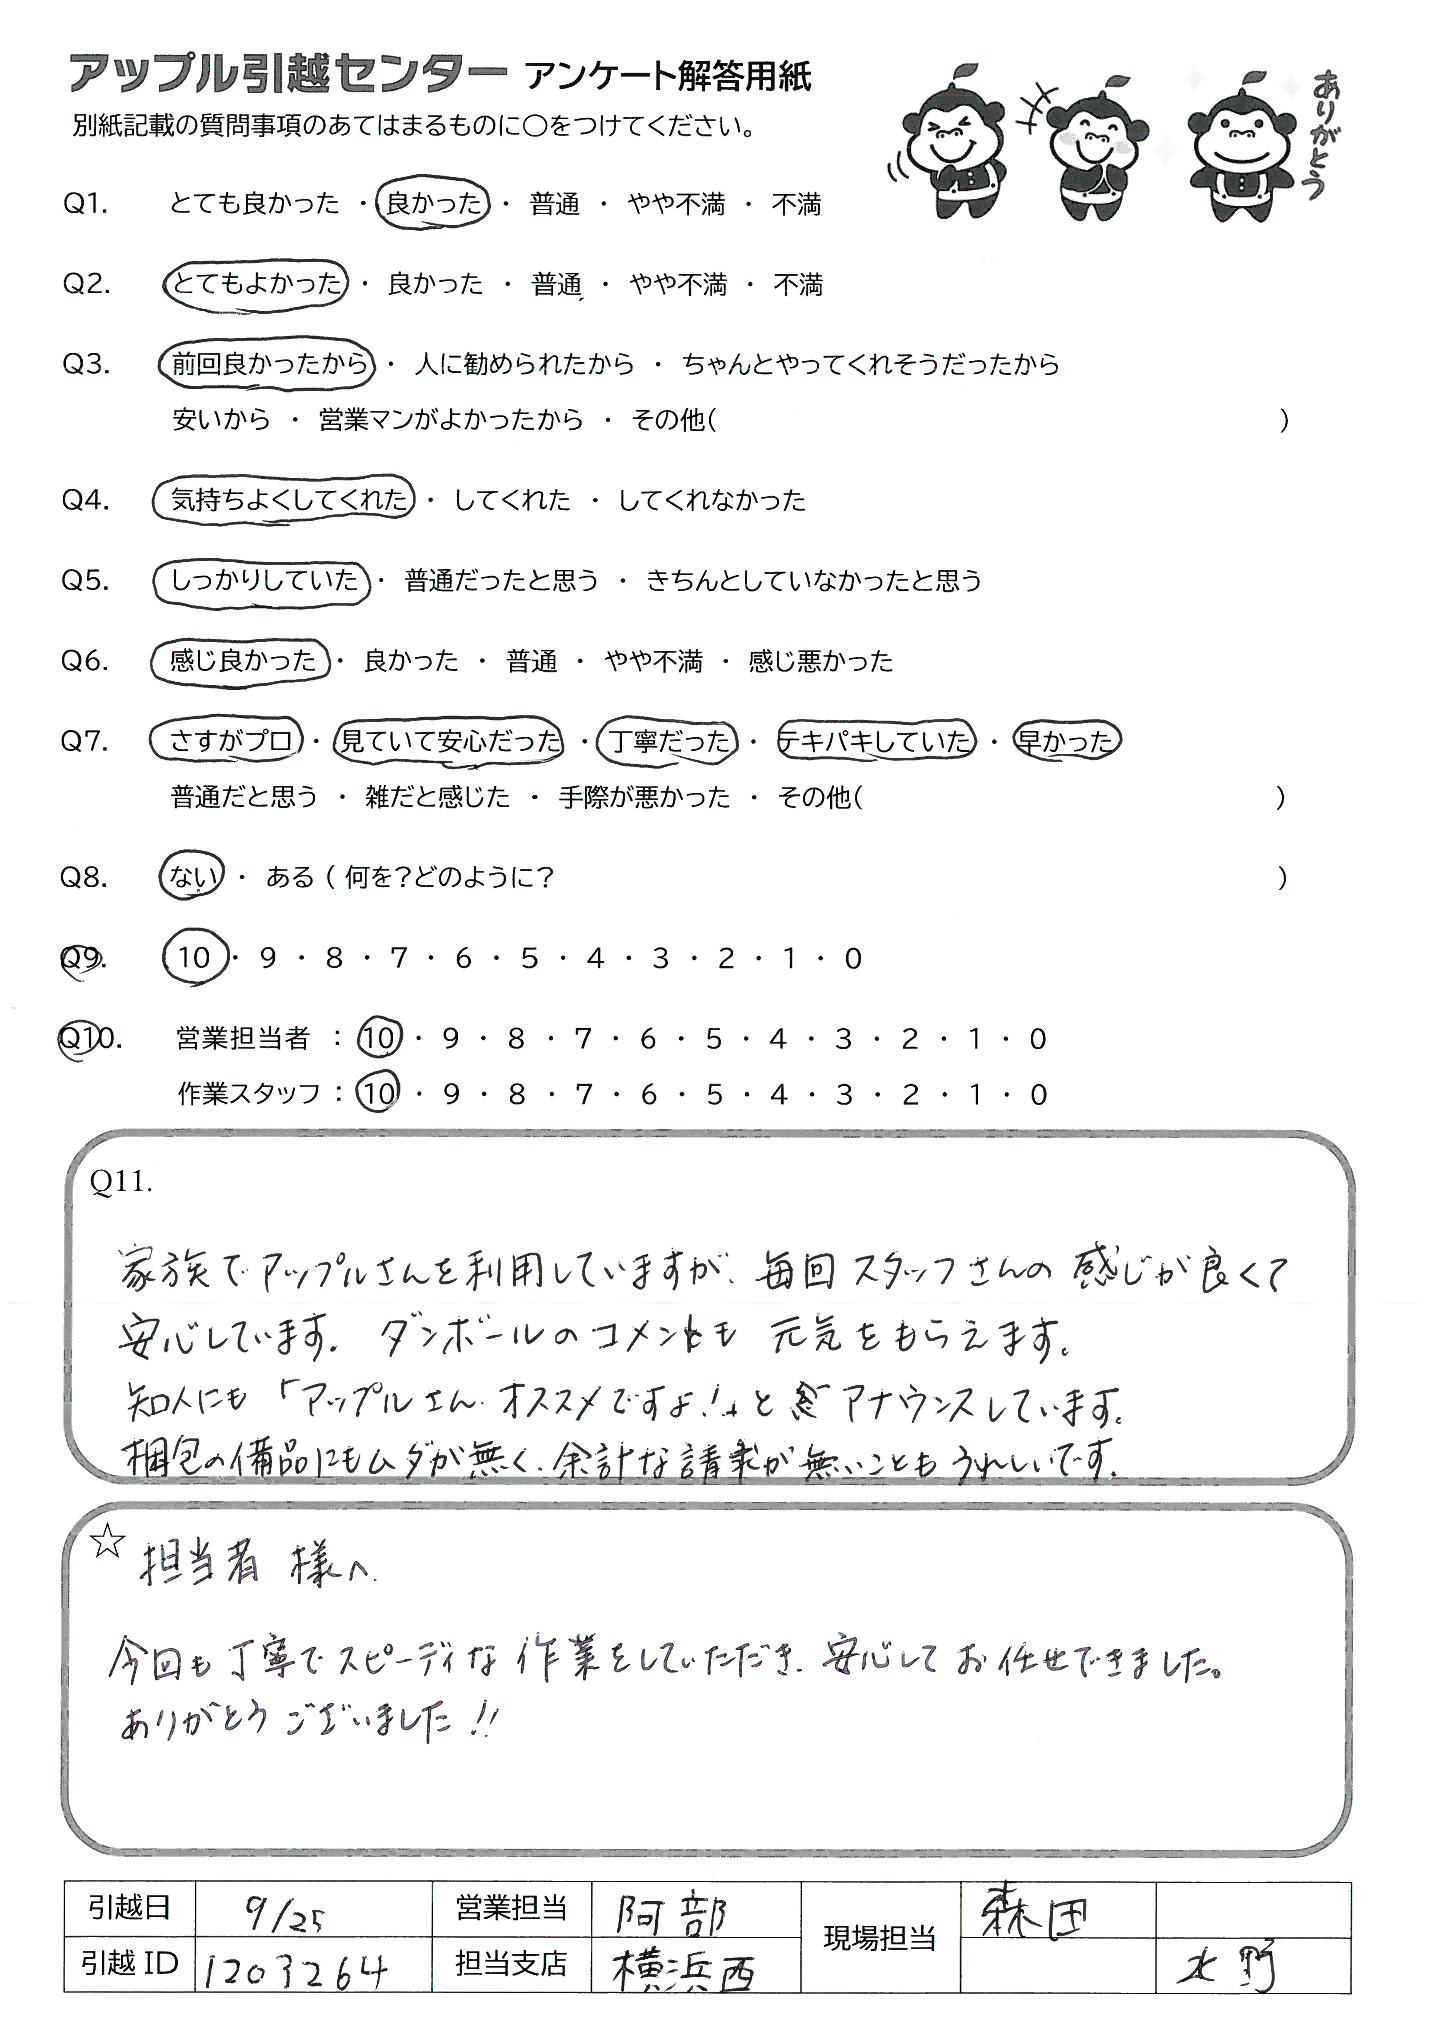 アップル引越センター アンケート解答用紙
別紙記載の質問事項のあてはまるものに○をつけてください。
ありがとう
Q1. とても良かった ・ 良かった ・ 普通 ・ やや不満 ・ 不満
Q2. とてもよかった ・ 良かった ・ 普通 ・ やや不満 ・ 不満
Q3. 前回良かったから ・ 人に勧められたから ・ ちゃんとやってくれそうだったから
安いから ・ 営業マンがよかったから ・ その他( )
Q4. 気持ちよくしてくれた ・ してくれた ・ してくれなかった
Q5. しっかりしていた ・ 普通だったと思う ・ きちんとしていなかったと思う
Q6. 感じ良かった ・ 良かった ・ 普通 ・ やや不満 ・ 感じ悪かった
Q7. さすがプロ ・ 見ていて安心だった ・ 丁寧だった ・ テキパキしていた ・ 早かった
普通だと思う ・ 雑だと感じた ・ 手際が悪かった ・ その他( )
Q8. ない ・ ある ( 何を?どのように? )
Q9. 10 ・ 9 ・ 8 ・ 7 ・ 6 ・ 5 ・ 4 ・ 3 ・ 2 ・ 1 ・ 0
Q10. 営業担当者 : 10 ・ 9 ・ 8 ・ 7 ・ 6 ・ 5 ・ 4 ・ 3 ・ 2 ・ 1 ・ 0
作業スタッフ : 10 ・ 9 ・ 8 ・ 7 ・ 6 ・ 5 ・ 4 ・ 3 ・ 2 ・ 1 ・ 0
Q11.
家族でアップルさんを利用していますが、毎回スタッフさんの感じが良くて
安心しています。ダンボールのコメントも元気をもらえます。
知人にも「アップルさんオススメですよ!」とアナウンスしています。
梱包の備品にもムダが無く、余計な請求が無いこともうれしいです。
☆ 担当者様へ
今回も丁寧でスピーディな作業をしていただき、安心してお任せできました。
ありがとうございました!!
引越日 9/25 営業担当 阿部 現場担当 森田
引越ID 1203264 担当支店 横浜西 水野